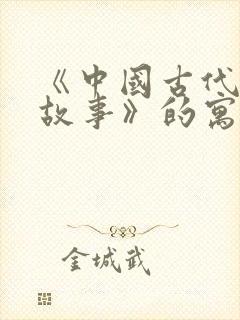 《中国古代
故事》的寓
金城武